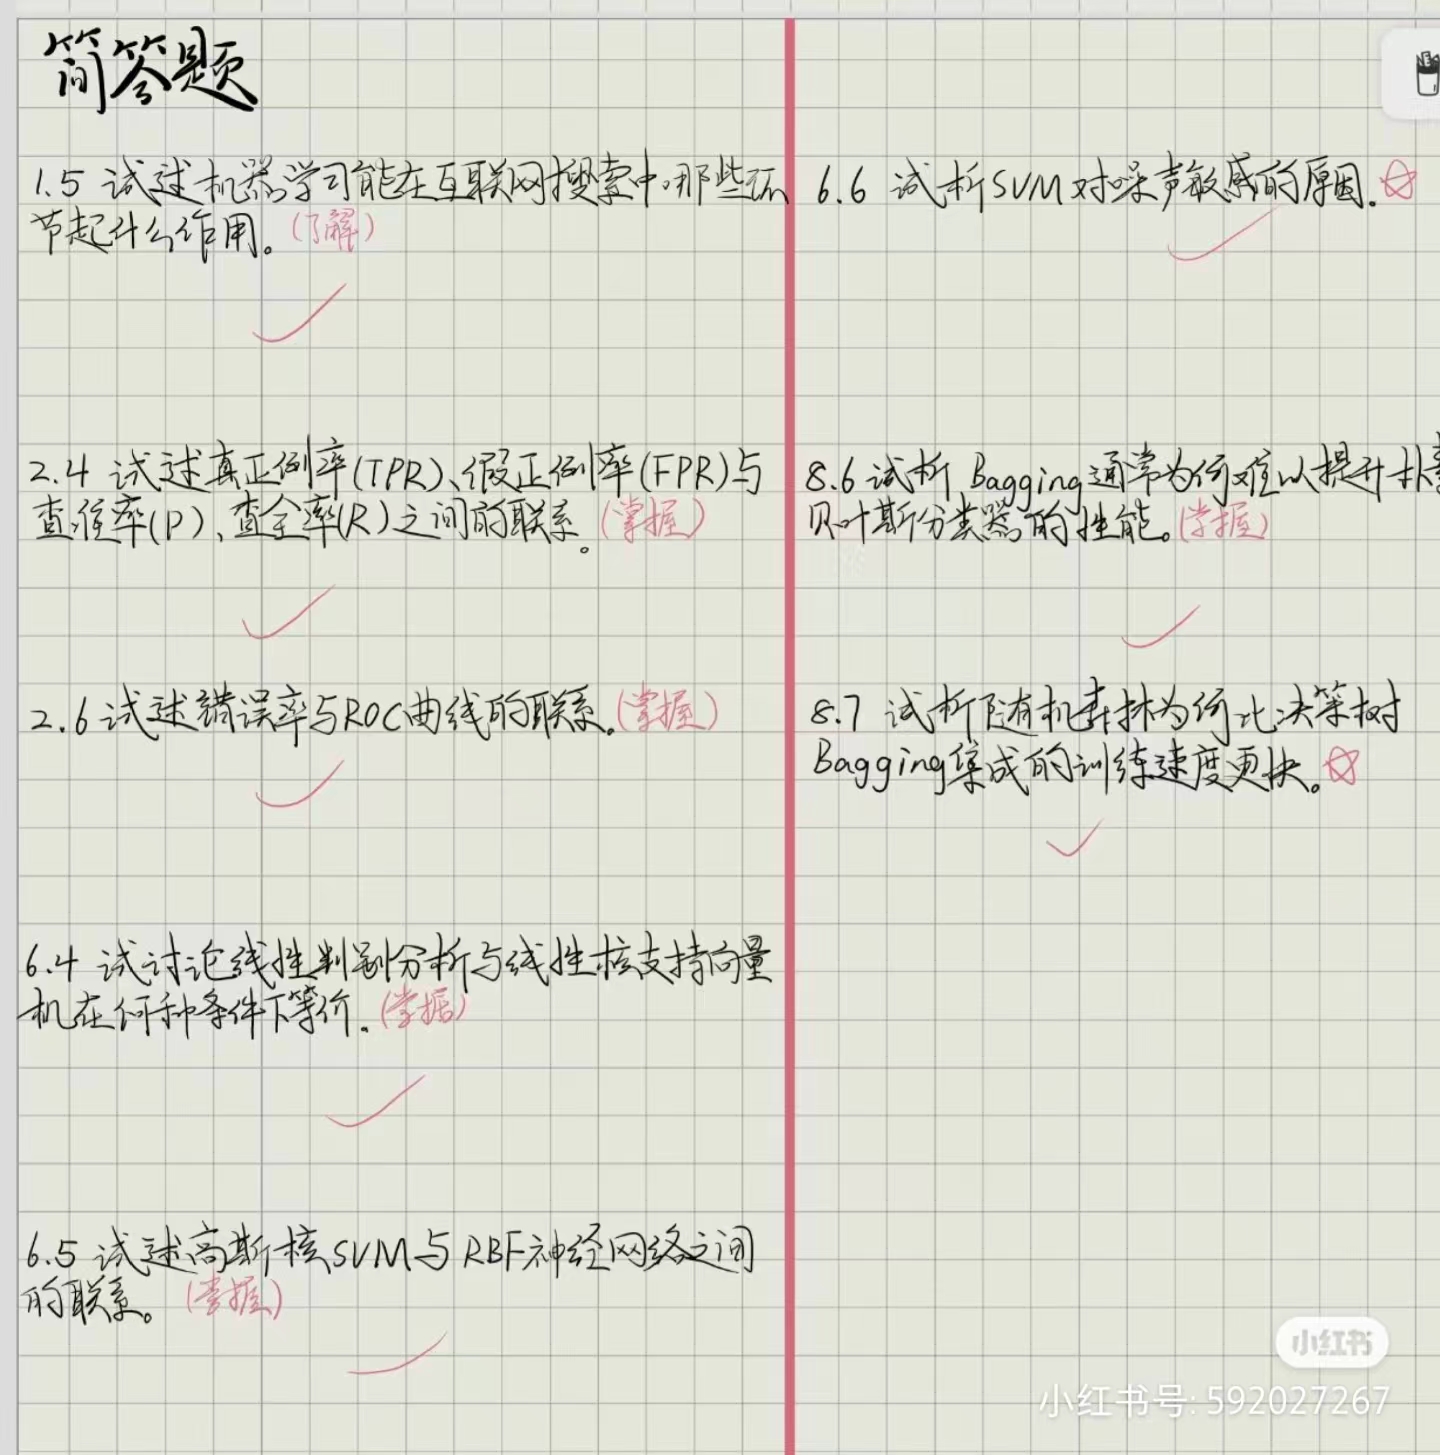 简答题
1.5 试述机器学习能在互联网搜索中哪些环
节起什么作用。(了解)
2.4 试述真正例率(TPR)、假正例率(FPR)与
查准率(P)、查全率(R)之间的联系。(掌握)
2.6 试述错误率与ROC曲线的联系。(掌握)
6.4 试讨论线性判别分析与线性核支持向量
机在何种条件下等价。(掌握)
6.5 试述高斯核SVM与RBF神经网络之间
的联系。(掌握)
6.6 试析SVM对噪声敏感的原因。
8.6 试析Bagging通常为何难以提升朴素
贝叶斯分类器的性能。(掌握)
8.7 试析随机森林为何比决策树
Bagging集成的训练速度更快。
小红书
小红书号: 592027267